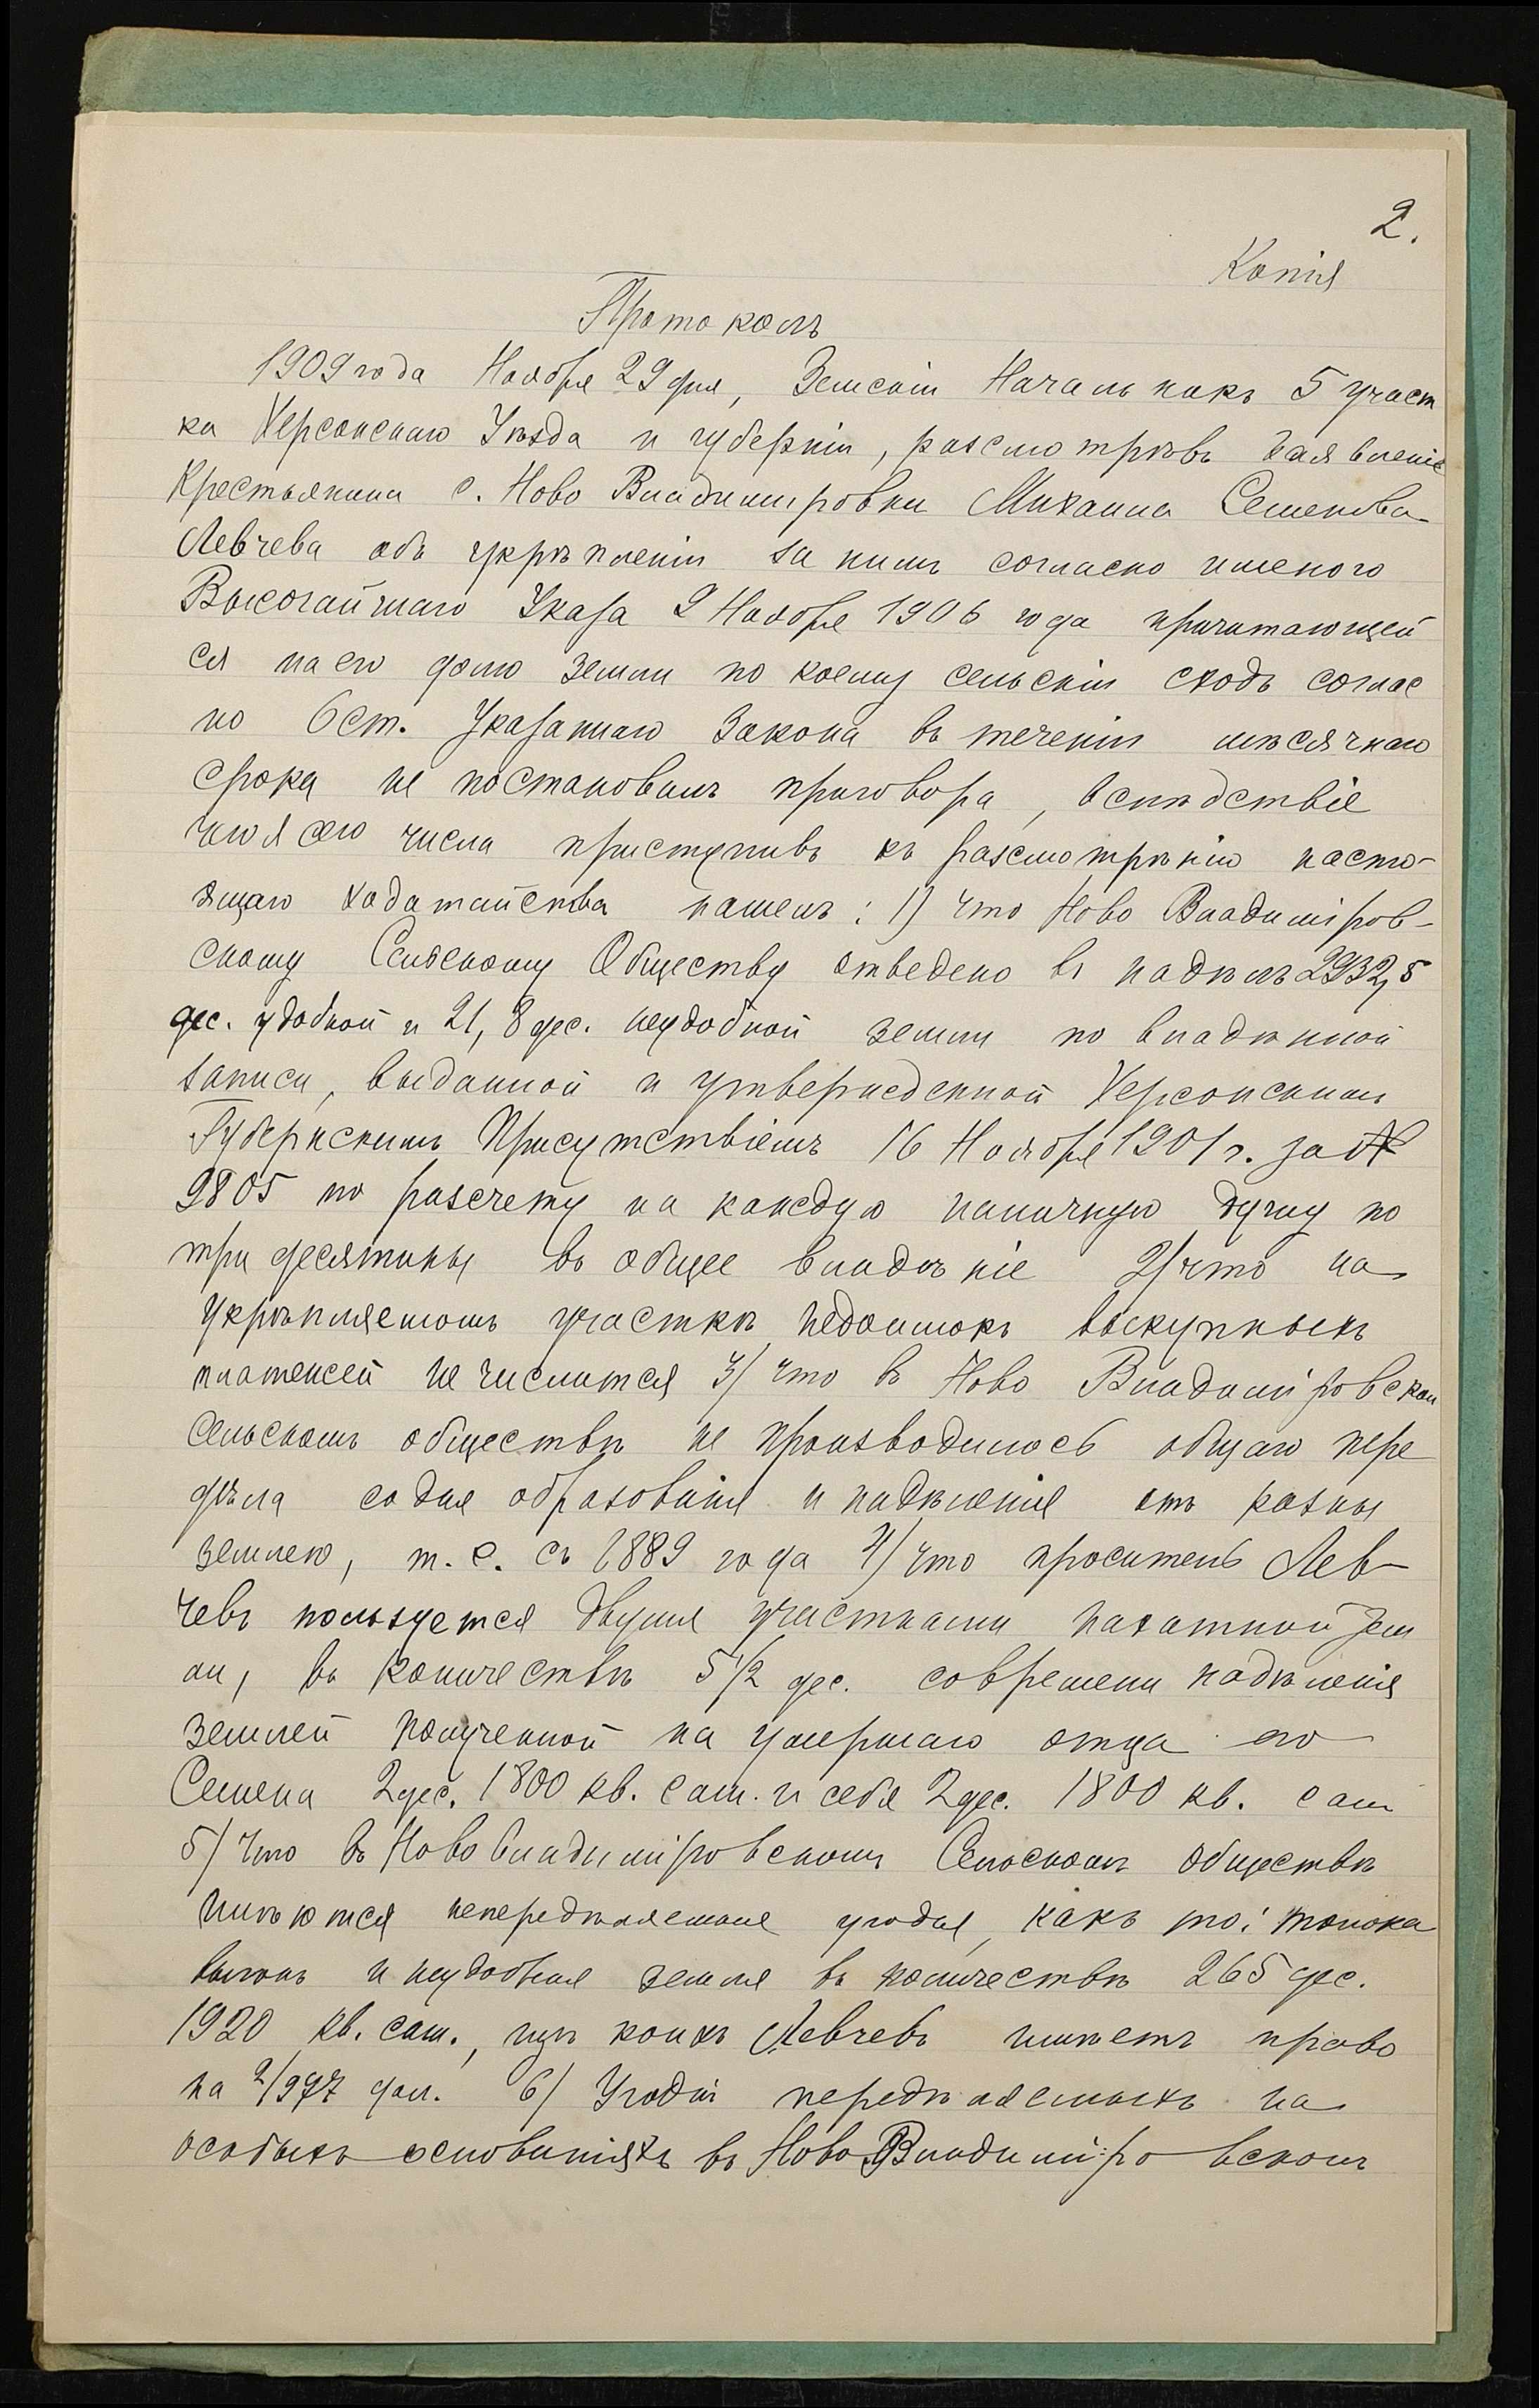 2.
Копія
Протоколъ
1909 года Ноября 29 дня, Земскій Начальникъ 5 участ
ка Херсонскаго Уѣзда и губерніи, разсмотрѣвъ заявленіе
Крестьянина с. Ново Владиміровки Михаила Семенова
Левчева объ укрѣпленіи за нимъ согласно именого
Высочайшаго Указа 9 Ноября 1906 года причитающей
ся на его долю земли по коему сельскій сходъ соглас
но 6 ст. Указаннаго Закона въ теченіи мѣсячнаго
срока не постановилъ приговора, вслѣдствіе
чего я сего числа приступивъ къ разсмотрѣнію насто-
ящаго ходатайства нашелъ: 1) что Ново Владиміров-
скому Сельскому Обществу отведено въ надѣлъ 2932,5
дес. удобной и 21,8 дес. неудобной земли по владѣнной
записи, выданной и утвержденной Херсонскимъ
Губернскимъ Присутствіемъ 16 Ноября 1901 г. за №
9805 по разсчету на каждую наличную душу по
три десятины въ общее владѣніе 2) что на
укрѣпляемомъ участкѣ недоимокъ выкупныхъ
платежей не числится 3) что въ Ново Владиміровском
Сельскомъ обществѣ не производилось общаго пере
дѣла со дня образованія и надѣленія отъ казны
землею, т. е. съ 1889 года 4) что проситель Лев-
чевъ пользуется двумя участками пахатной зем
ли, въ количествѣ 5 1/2 дес. современи надѣленія
землей полученной на умершаго отца его
Семена 2 дес. 1800 кв. саж. и себя 2 дес. 1800 кв. саж
5) что въ Ново Владиміровскомъ Сельскомъ обществѣ
имѣются непередѣляемыя угодья, какъ то: толока
выгонъ и неудобная земля въ количествѣ 265 дес.
1920 кв. саж., изъ коихъ Левчевъ имѣетъ право
на 2/977 дол. 6) Угодій передѣляемыхъ на
особыхъ основаніяхъ въ Ново Владиміровскомъ